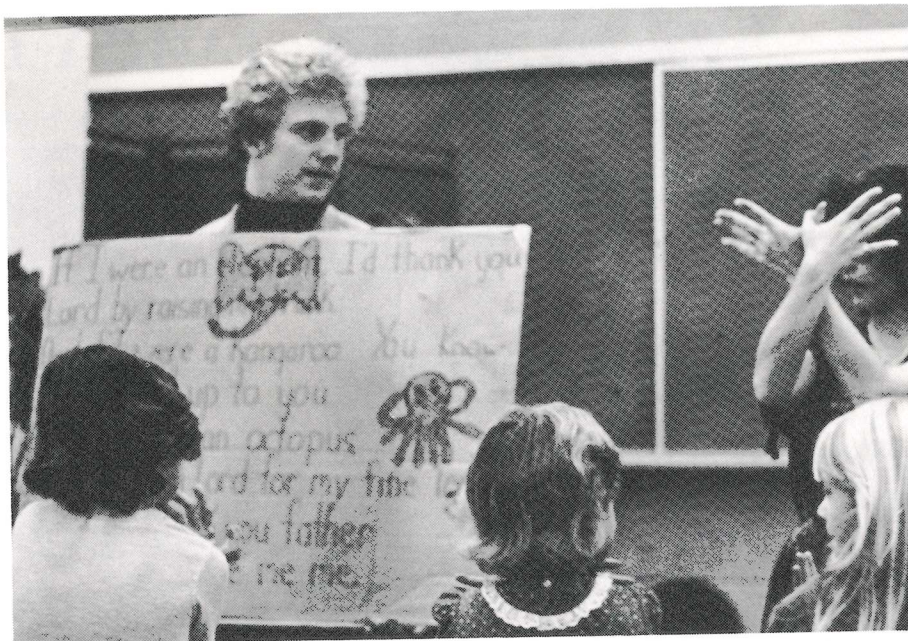 If I were an elephant, I'd thank you
Lord by raising my trunk
were a kangaroo You know
up to you
an octopus
Lord for my fine
you father
me me.